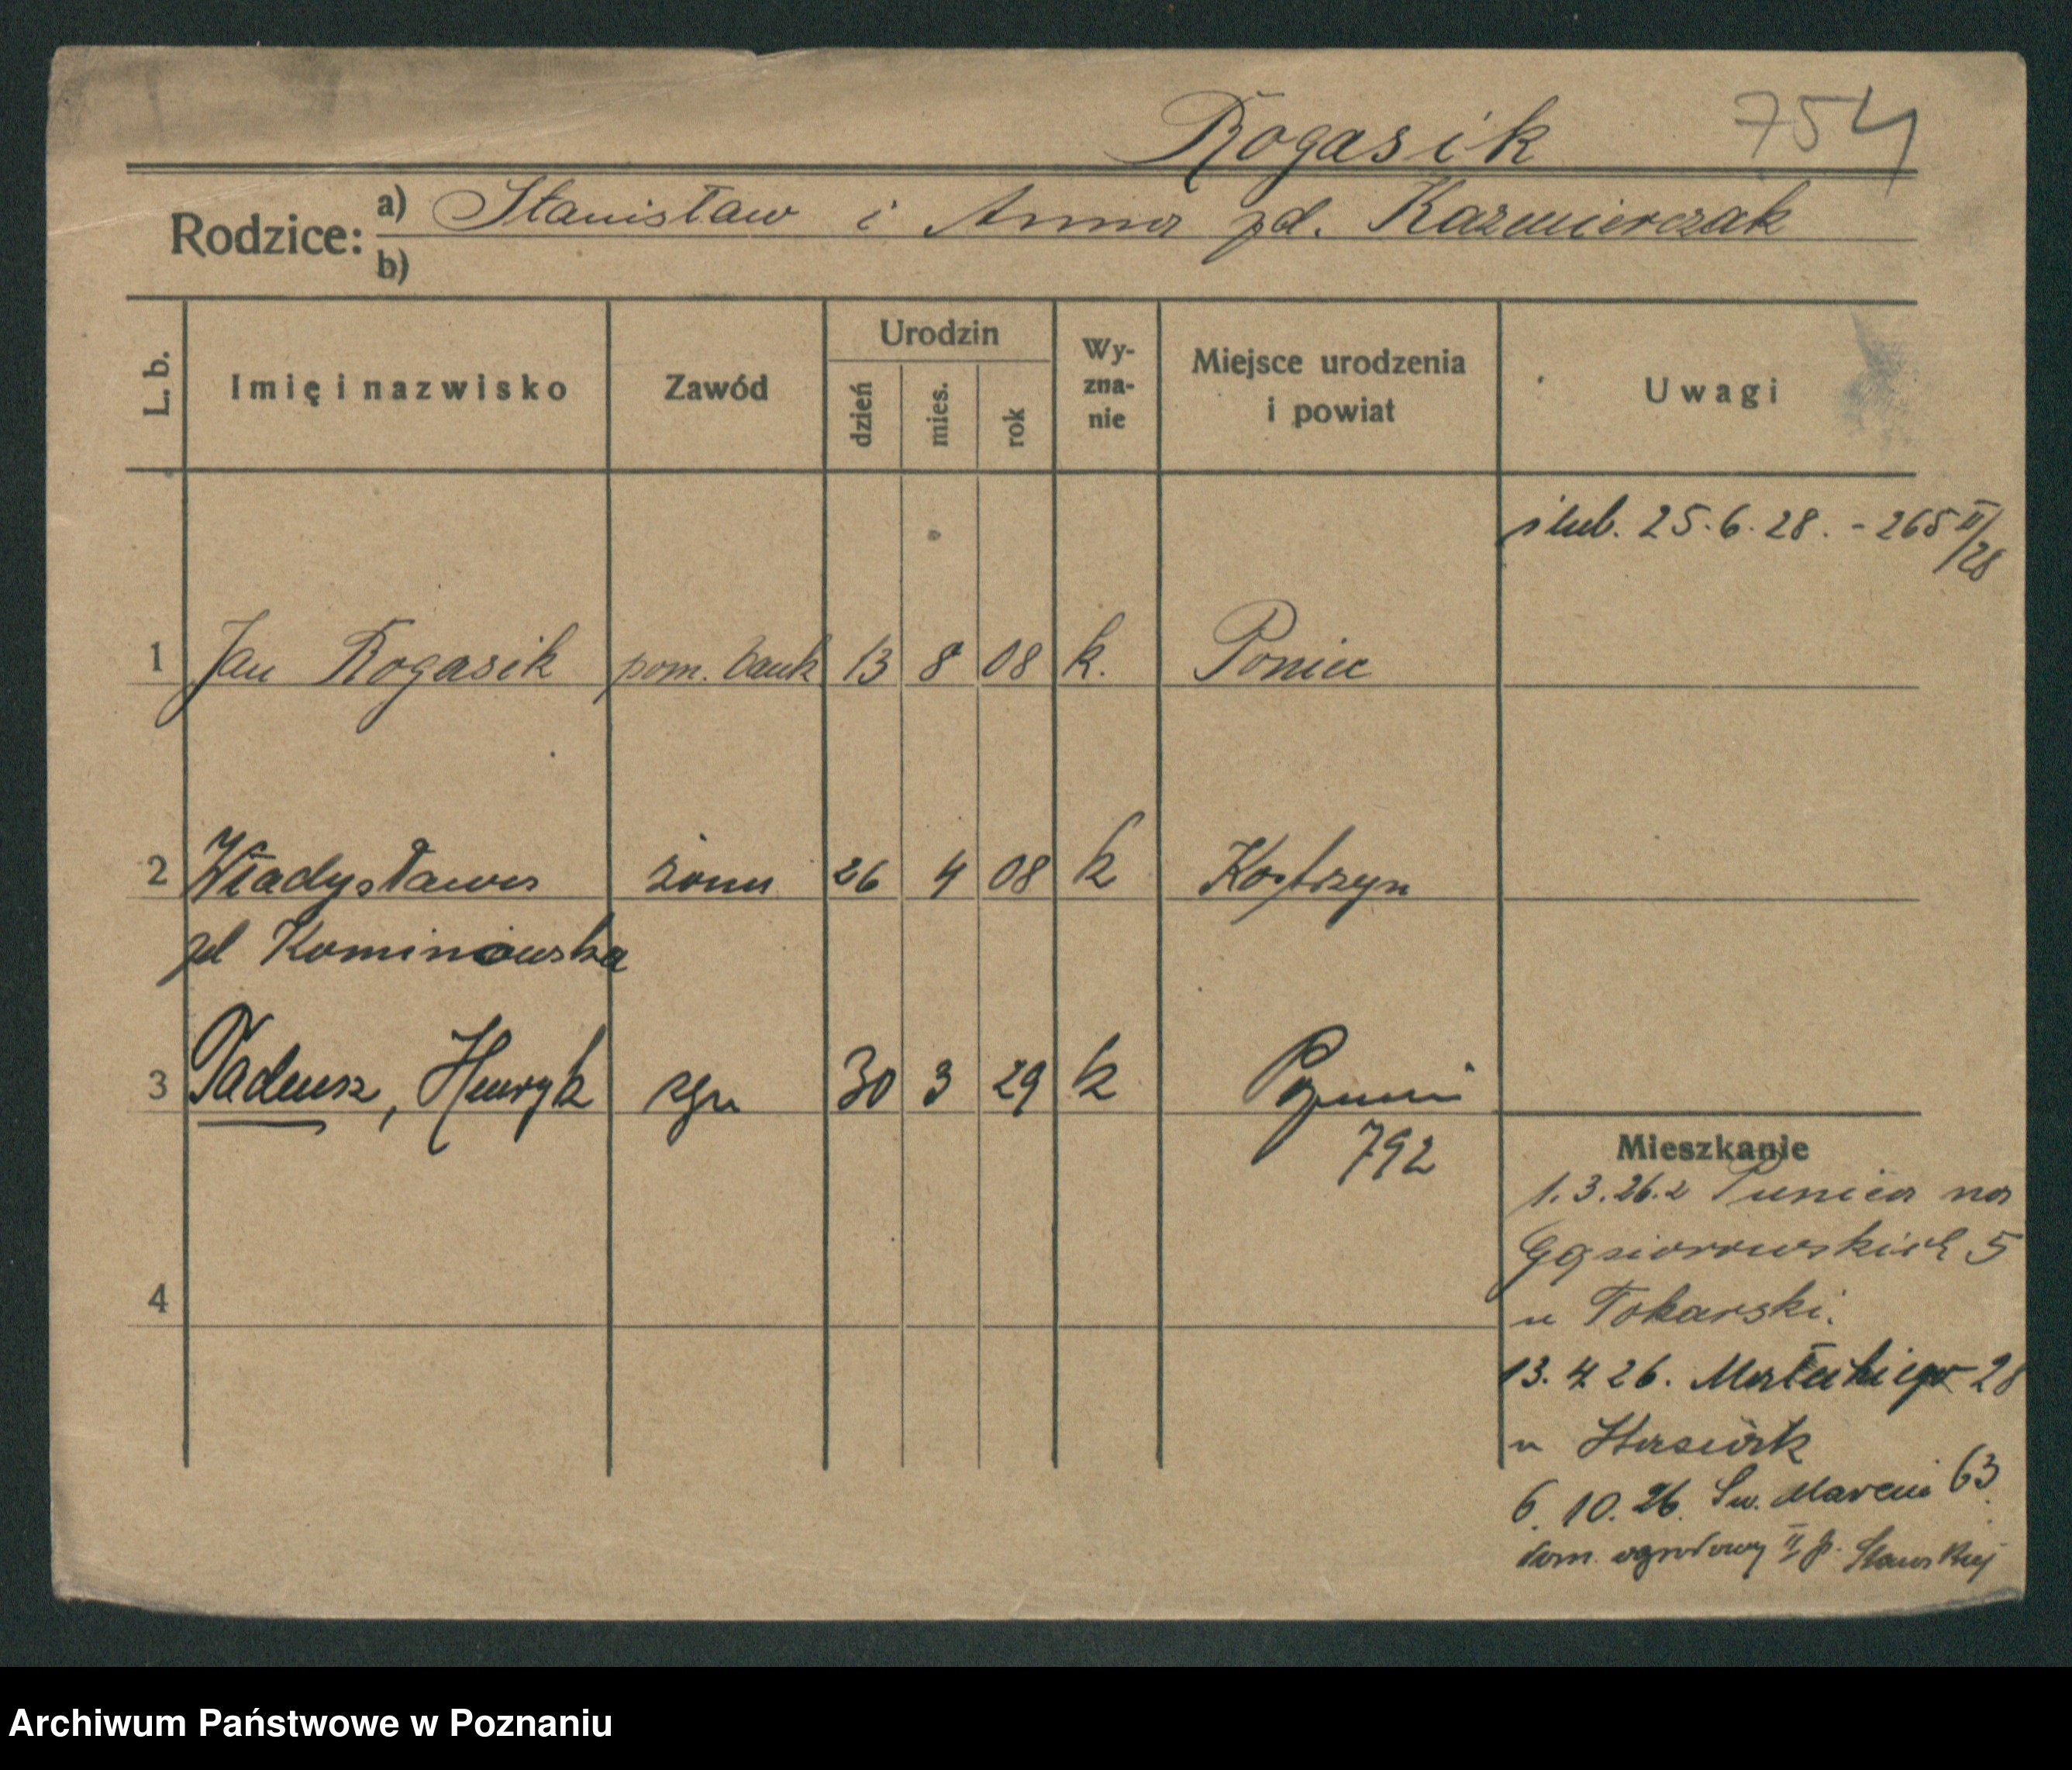 Rogasik 754
Rodzice: a) Stanisław i Anna zd. Kazmierczak
b)
L. b. Imię i nazwisko Zawód Urodzin dzień mies. rok Wy-zna-nie Miejsce urodzenia i powiat Uwagi
ślub. 25.6.28. - 265 II/28
1 Jan Rogasik pom. bank 13 8 08 k. Poniec
2 Władysława żona 26 4 08 k Kostrzyn
zd Kominowska
3 Tadeusz, Henryk syn 30 3 29 k Poznań
792
Mieszkanie
1.3.26. z Punica na
Gąsiorowskich 5
u Tokarski.
4
13.4.26. Małeckiego 28
u
6.10.26. Św. Marcin 63
dom. ogrodowy II p.
Archiwum Państwowe w Poznaniu